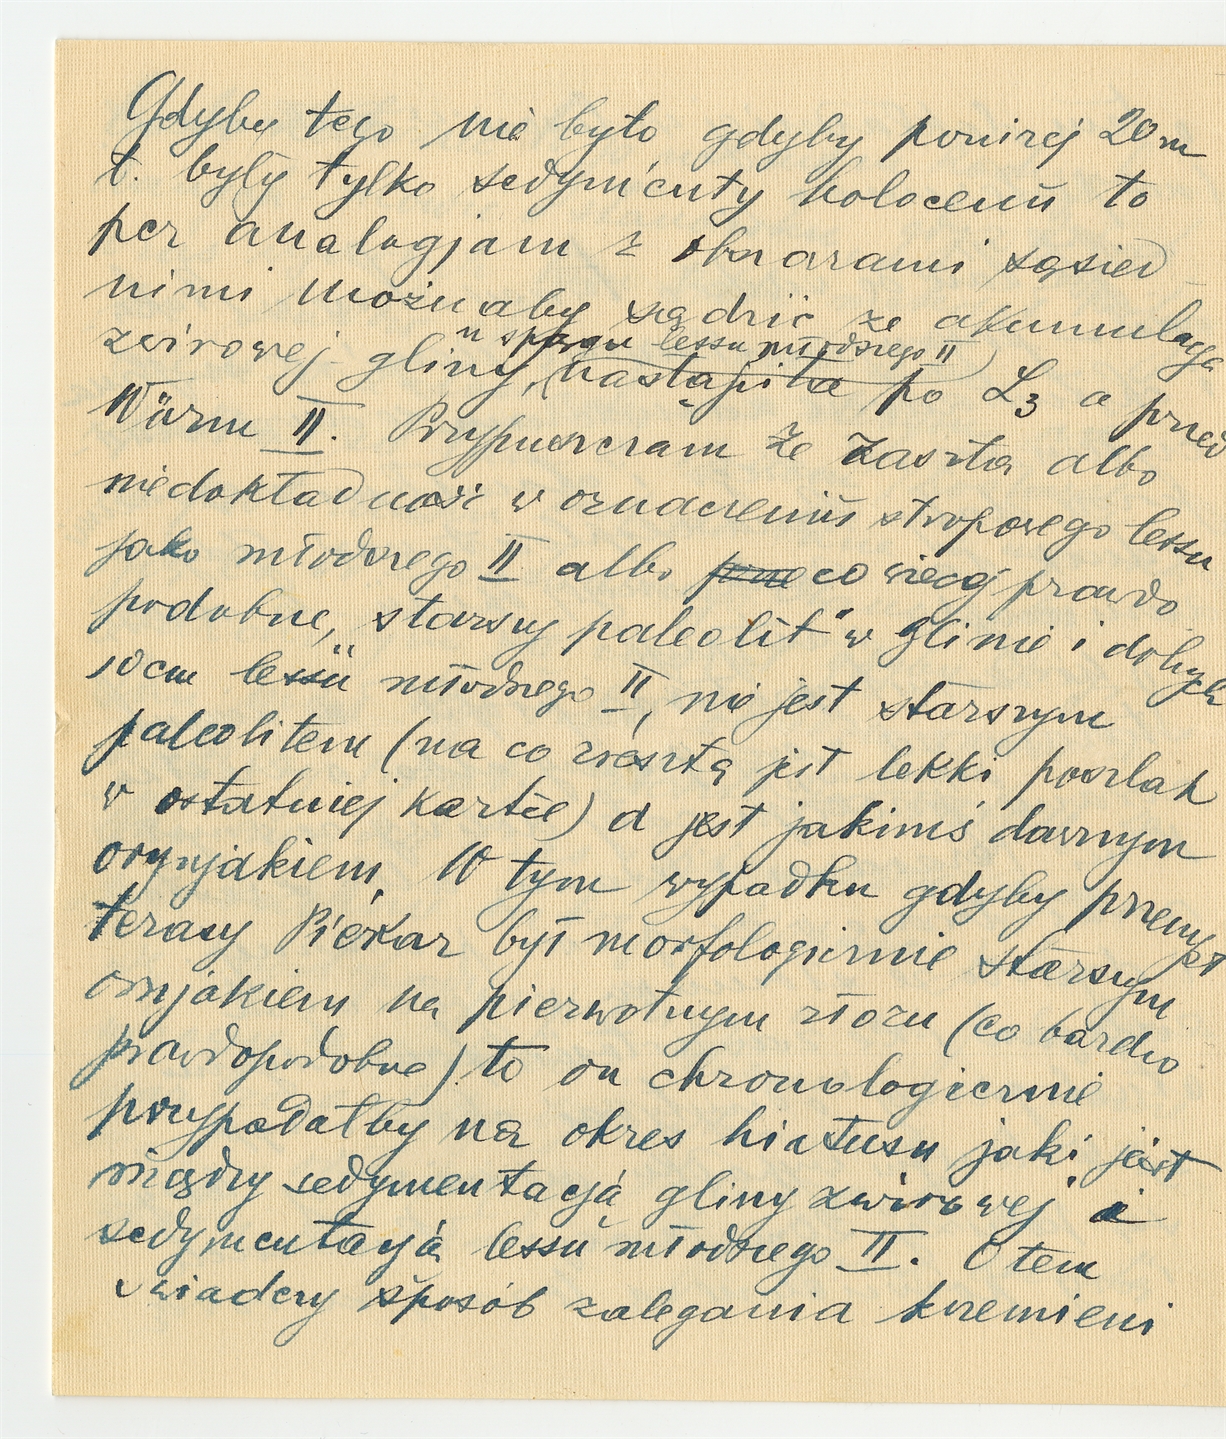 Gdyby tego nie było gdyby poniżej 20 m
t. były tylko sedymenty holocenu to
per analogjam z obszarami sąsied
nimi możnaby sądzić że akumulacja
u spągu lessu młodszego II
żwirowej gliny, (nastąpiła po L3 a przed
Würm II. Przypuszczam że zaszła albo
niedokładność w oznaczeniu stropowego lessu
jako młodszego II albo co więcej prawdo
podobne, starszy paleolit" w glinie i dolnych
10 cm lessu młodszego II, nie jest starszym
paleolitem (na co zresztą jest lekki poszlak
w ostatniej kartce) a jest jakimś dawnym
oryniakiem. W tym wypadku gdyby przemysł
terasy Piekar był morfologicznie starszym
orinjakiem na pierwotnym złożu (co bardzo
prawdopodobne) to on chronologicznie
przypadałby na okres hiatusu jaki jest
między sedymentacją gliny żwirowej i
sedymentacją lessu młodszego II. O tem
świadczy sposób zalegania krzemieni